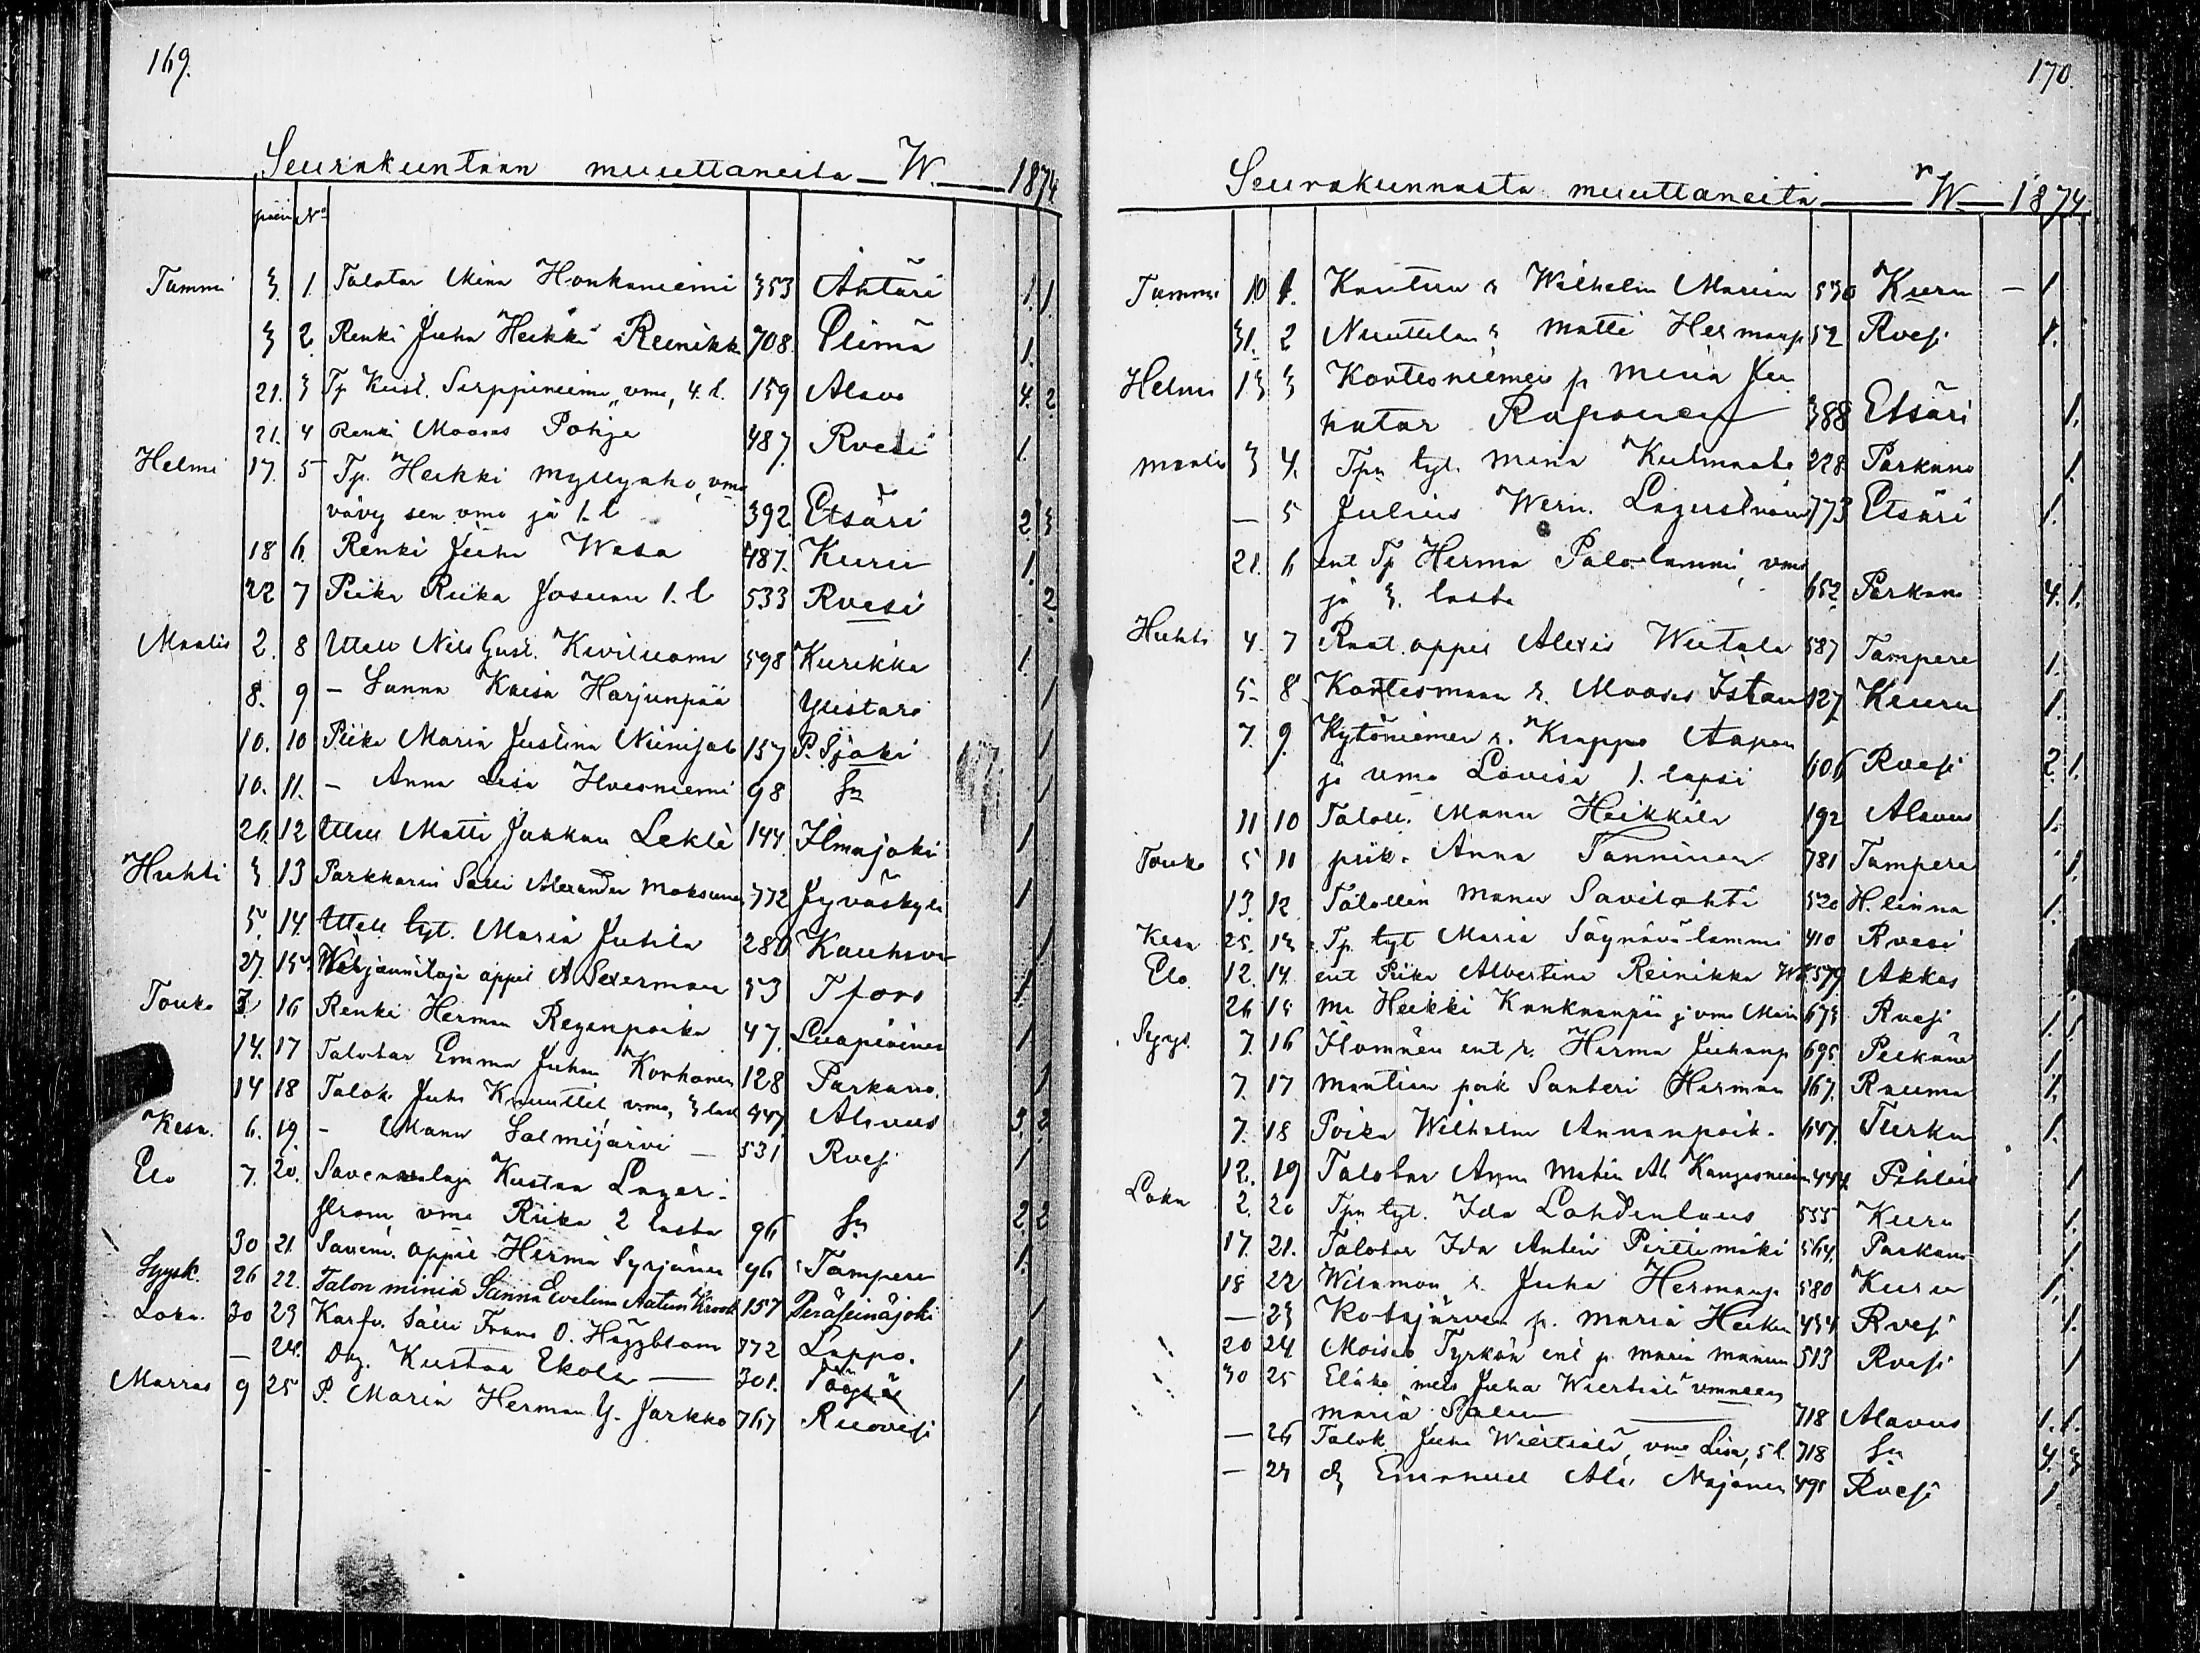 169.
Seurakuntaan muuttaneita — W. — 1874
päiv No
Tammi 3. 1. Talotar Miina Honkaniemi 353 Ähtäri 1. 1.
3 2. Renki Juha Heikki Reinikk 708. Piimä 1.
21. 3 Tp Kust. Serppiniemi, vmo, 4. l. 159 Alavo 4. 2.
21. 4 Renki Mooses Pohja 487. Rvesi 1.
Helmi 17. 5 Tp. Heikki Myllyaho, vmo
vävy sen vmo ja 1. l 392 Etsäri 2. 3
18 6. Renki Juha Wasa 487. Kuru 1.
22 7 Piika Riika Josuan 1. l 533 Rvesi 2.
Maalis 2. 8 Ittell Nils Gust. Kiviluoma 598 Kurikka 1.
8. 9 — Sanna Kaisa Harjunpää Ylistaro 1
10. 10 Piika Maria Justina Niinijal 157 P. Sjoki 1
10. 11. — Anna Lisa Ilvesniemi 98 Sn 1
26. 12 Ittell Matti Juakan Leklè 144. Ilmajoki 1
Huhti 3 13 Parkkarin Sälli Alexander 772 Jyväskylä 1
5. 14. Ittell tyt. Maria Juhila 280 Kauhava 1
27. 15. oppil A Sexerman 53 Tfors 1.
Touko 3 16 Renki Herman Regenpoika 47. 1
14. 17 Talotar Emma Juhan Korhonen 128 Parkano. 1
14 18 Talok. Juha Knuuttil vmo, 3 last 447. Alavus 3. 2.
Kesä. 6. 19. — Manu Salmijärvi — 531 Rvesi 1
Elo 7. 20. Kustaa Lager-
strom, vmo Riika 2 lasta 96 Sn 2. 2
30 21. Saveni. oppil Herma Syrjänen 96 Tampere 1.
Syysk. 26 22. Talon miniä Sanna Evelina Aatun Krook 157 Peräseinäjoki 1
Loka. 30 23 Karfv. Sälli Frans O. Häggblom 772 Lappo. 1
— 24. Dag. Kustaa Ekola — 301. Töysä 1
Marras 9 25 P. Maria Herman. Y. Jarkko 767 Ruovesi 1
170.
Seurakunnasta muuttaneita — W — 1874.
Tammi 10 1. Kautun r Wilhelm Marian 530 Kuru — 1
31. 2 Nuuttilan r Matti Hermanp 52 Rvesi 1.
Helmi 13 3 Kontesniemen p Miina Ju
hatar Raponen 388 Etsäri 1.
Maalis 3 4. Tpn tyt. Mina Kulmaala 228 Parkano 1.
— 5 Julius Wern. Lagerström 773 Etsäri 1.
21. 6 ent Tp Herma Palolammi, vmo
ja 3. lasta 652. Parkano 4. 1.
Huhti 4. 7 Raat. oppil Alexis Wiitala 587 Tampere 1.
5. 8 Kontesmaan r. Mooses Istan 127 Kuuru 1.
7. 9. Kytöniemen r. Krappo Aapon
ja vmo Lovisa 1. lapsi 606 Rvesi 2. 1.
11 10 Taloll. Manu Heikkilä 192 Alavus 1.
Touko 5 11 piik. Anna Tanninen 781 Tampere 1.
13. 12 Talollin Manu Savilahti 520 H. linna 1.
Kesä 25. 13 Tp. tyt Maria Säynävälammi 410 Rvesi 1
Elo. 12. 14. ent Piika Albertina Reinikka 579 Akkas 1
26 15 Mr Heikki Kankaanpää ja vmo Mari 673 Rvesi 1. 1
Syys. 7. 16 Ilomäen ent r. Herma Juhanp 695. Pälkäne 1.
7. 17 Mantien poik Santeri Herman 167. Rauma 1.
7. 18 Poika Wilhelm Annanpoik. 647. Turku 1.
12. 19 Talotar Anna Maria Ala Kangasniemi 444. Pihlaj 1
Loka 2. 20 Tpn tyt. Ida Lahdenlaus 555 Kuru 1.
17. 21. Talotar Ida Antin Pirttimäki 564. Parkano 1.
18 22 Wisamon r. Juha Hermanp. 580 Kuru 1.
— 23 Kotajärven p. Maria Heikin 434 Rvesi 1.
20 24 Moisio Tyrkön ent p Maria Manun 513 Rvesi 1
30 25 Eläke mies Juha Wiertiälä vmneen
Maria Salm — 718 Alavus 1. 1.
— 26 Talok Juha Wiertiälä, vmo Lisa, 5 l. 718 Sn 4. 3
— 27 d Emanuel Ala Majanen 495 Rvesi 1.